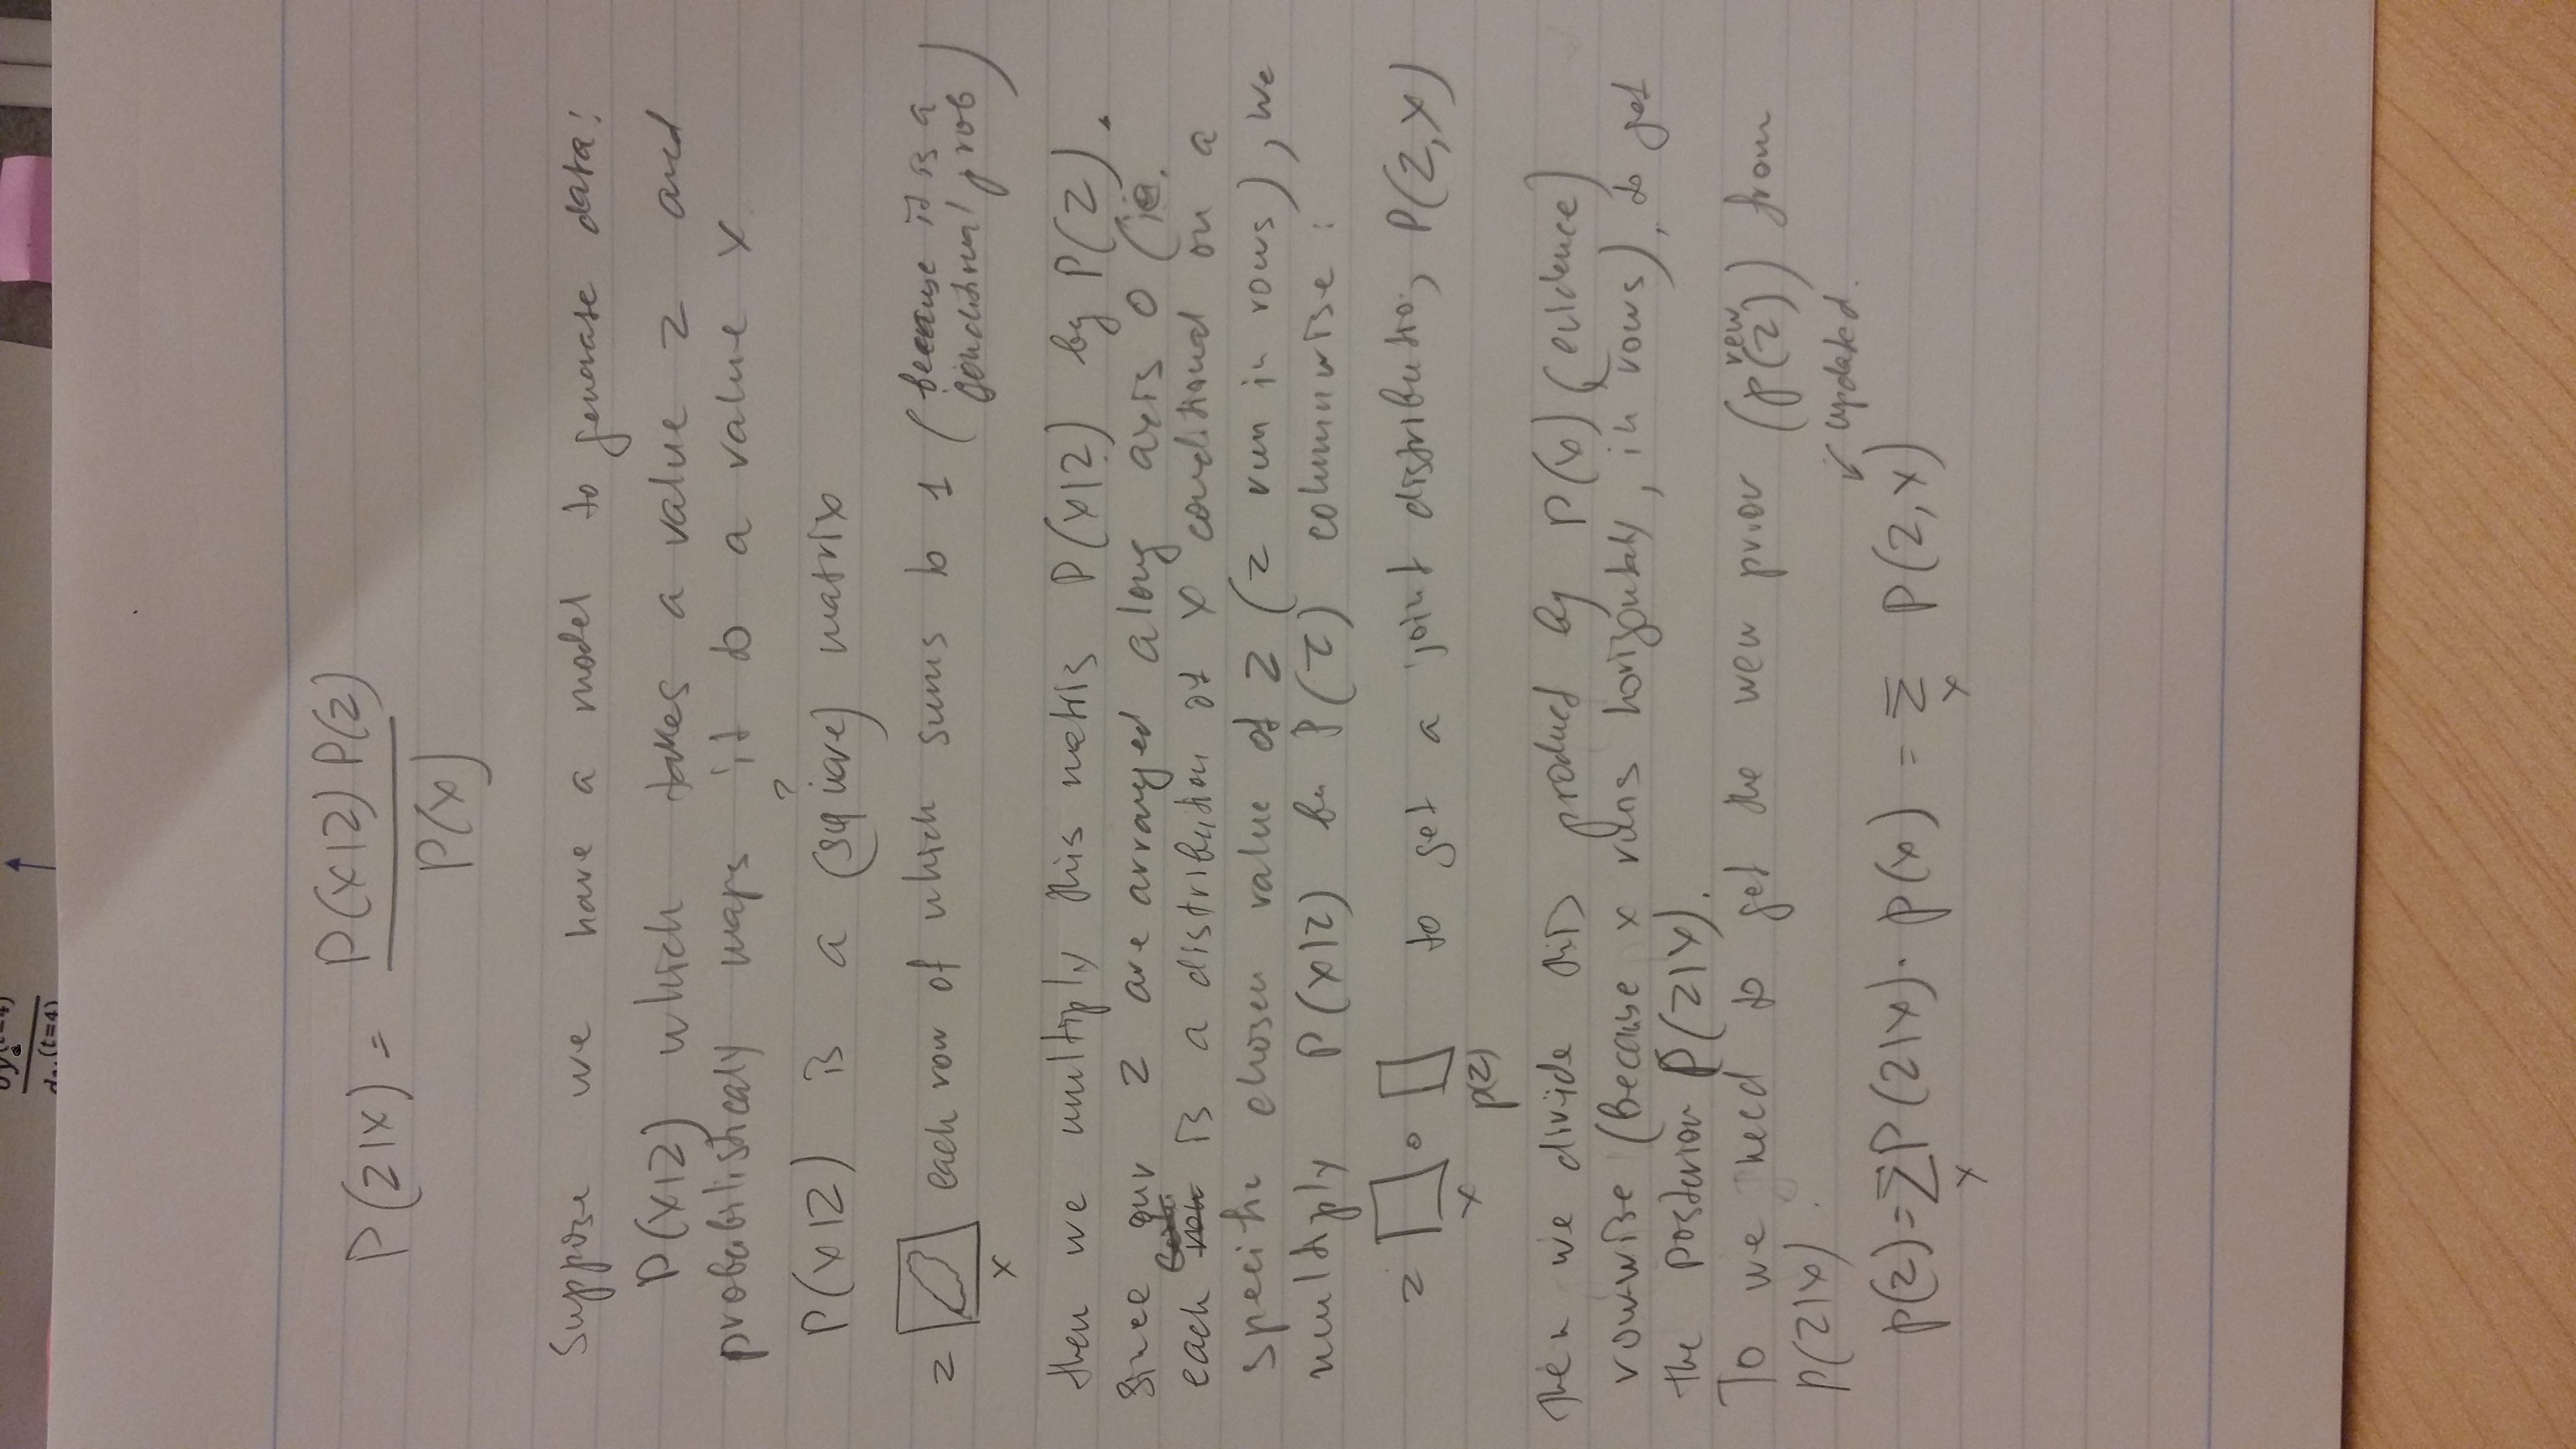 ∂y(t=4)
(t=4)
P(z|x) = P(x|z) P(z)
P(x)
Suppose we have a model to generate data:
P(x|z) which takes a value z and
probabilisticaly maps it to a value x
?
P(x|z) is a (square) matrix
z each row of which sums to 1 (because it is a
conditional prob)
x
then we multiply this matrix P(x|z) by P(z).
Since our z are arranged along axis 0 (ie.
each row is a distribution of x conditional on a
specific chosen value of z (z run in rows), we
multiply P(x|z) by P(z) columnwise:
z ∘ to get a joint distribution, P(z,x)
x p(z)
Then we divide this product by P(x) (evidence)
rowwise (because x runs horizontaly, in rows), to get
the posterior P(z|x).
To we need to get the new prior (p(z)) from
new
p(z|x).
↙ updated.
p(z) = Σ P(z|x) · p(x) = Σ P(z,x)
x x